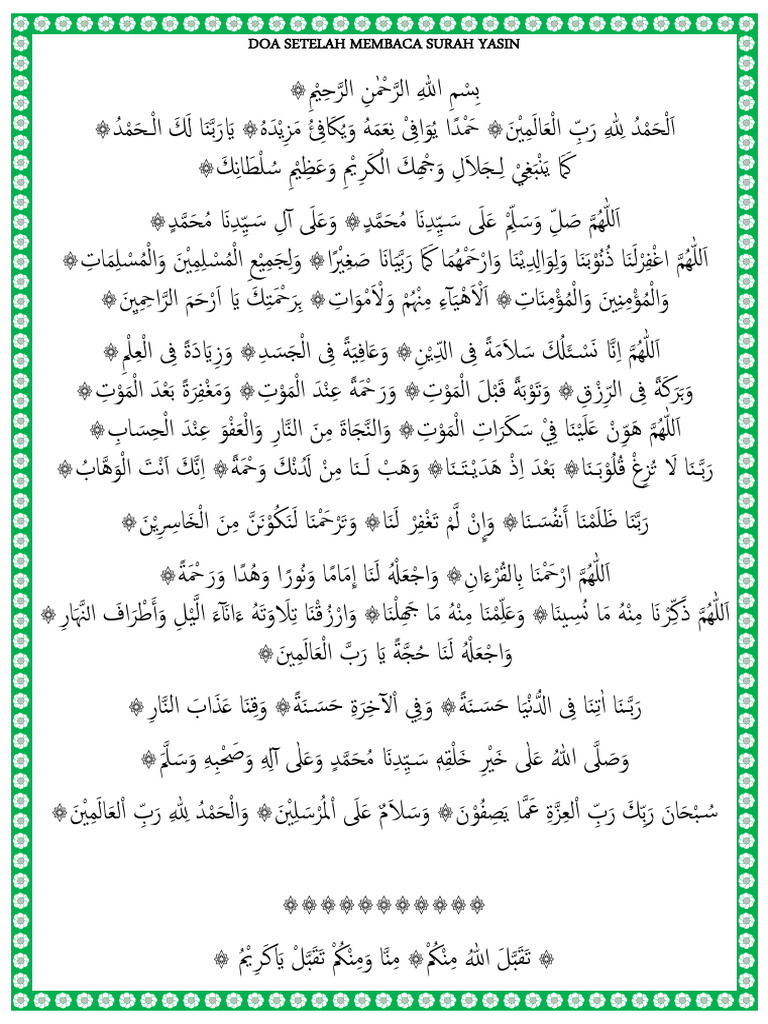 DOA SETELAH MEMBACA SURAH YASIN
بِسْمِ اللهِ الرَّحْمٰنِ الرَّحِيْمِ۞
اَلْحَمْدُ لِلهِ رَبِّ الْعَالَمِيْنَ۞ حَمْدًا يُوَافِيْ نِعَمَهُ وَيُكَافِئُ مَزِيْدَهُ۞ يَارَبَّنَا لَكَ الْحَمْدُ۞
كَمَا يَنْبَغِيْ لِجَلَالِ وَجْهِكَ الْكَرِيْمِ وَعَظِيْمِ سُلْطَانِكَ۞
اَللّٰهُمَّ صَلِّ وَسَلِّمْ عَلَى سَيِّدِنَا مُحَمَّدٍ۞ وَعَلَى آلِ سَيِّدِنَا مُحَمَّدٍ۞
اَللّٰهُمَّ اغْفِرْلَنَا ذُنُوْبَنَا وَلِوَالِدِيْنَا وَارْحَمْهُمَا كَمَا رَبَّيَانَا صَغِيْرًا۞ وَلِجَمِيْعِ الْمُسْلِمِيْنَ وَالْمُسْلِمَاتِ۞
وَالْمُؤْمِنِيْنَ وَالْمُؤْمِنَاتِ۞ اَلْاَهْيَآءِ مِنْهُمْ وَلْاَمْوَاتِ۞ بِرَحْمَتِكَ يَا اَرْحَمَ الرَّاحِمِيْنَ۞
اَللّٰهُمَّ اِنَّا نَسْـَٔلُكَ سَلَامَةً فِى الدِّيْنِ۞ وَعَافِيَةً فِى الْجَسَدِ۞ وَزِيَادَةً فِى الْعِلْمِ۞
وَبَرَكَةً فِى الرِّزْقِ۞ وَتَوْبَةً قَبْلَ الْمَوْتِ۞ وَرَحْمَةً عِنْدَ الْمَوْتِ۞ وَمَغْفِرَةً بَعْدَ الْمَوْتِ۞
اَللّٰهُمَّ هَوِّنْ عَلَيْنَا فِيْ سَكَرَاتِ الْمَوْتِ۞ وَالنَّجَاةَ مِنَ النَّارِ وَالْعَفْوَ عِنْدَ الْحِسَابِ۞
رَبَّنَا لَا تُزِغْ قُلُوْبَنَا۞ بَعْدَ اِذْ هَدَيْتَنَا۞ وَهَبْ لَنَا مِنْ لَدُنْكَ وَحْمَةً۞ اِنَّكَ اَنْتَ الْوَهَّابُ۞
رَبَّنَا ظَلَمْنَا أَنفُسَنَا۞ وَإِنْ لَّمْ تَغْفِرْ لَنَا۞ وَتَرْحَمْنَا لَنَكُوْنَنَّ مِنَ الْخَاسِرِيْنَ۞
اَللّٰهُمَّ ارْحَمْنَا بِالقُرْءَانِ۞ وَاجْعَلْهُ لَنَا إِمَامًا وَنُورًا وَهُدًا وَرَحْمَةً۞
اَللّٰهُمَّ ذَكِّرْنَا مِنْهُ مَا نُسِينَا۞ وَعَلِّمْنَا مِنْهُ مَا جَهِلْنَا۞ وَارْزُقْنَا تِلَاوَتَهُ ءَانَآءَ الَّيْلِ وَأَطْرَافَ النَّهَارِ۞
وَاجْعَلْهُ لَنَا حُجَّةً يَا رَبَّ الْعَالَمِينَ۞
رَبَّنَا اٰتِنَا فِى الدُّنْيَا حَسَنَةً۞ وَفِي اْلآخِرَةِ حَسَنَةً۞ وَقِنَا عَذَابَ النَّارِ۞
وَصَلَّى اللهُ عَلٰى خَيْرِ خَلْقِهٖ سَيِّدِنَا مُحَمَّدٍ وَعَلٰى آلِهِ وَصَحْبِهِ وَسَلَّمَ۞
سُبْحَانَ رَبِّكَ رَبِّ اْلعِزَّةِ عَمَّا يَصِفُوْنَ۞ وَسَلاَمٌ عَلَى اْلمُرْسَلِيْنَ۞ وَالْحَمْدُ لِلهِ رَبِّ اْلعَالَمِيْنَ۞
۞۞۞۞۞۞۞۞۞۞۞
۞ تَقَبَّلَ اللهُ مِنْكُمْ۞ مِنَّا وَمِنْكُمْ تَقَبَّلْ يَاكَرِيْمُ ۞